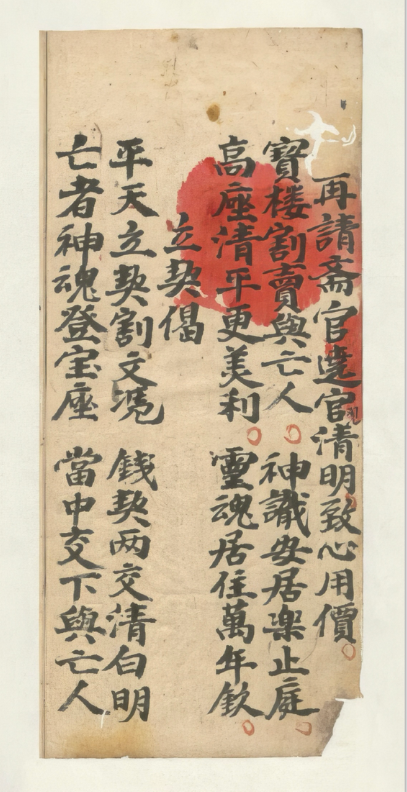 再請斋官逵官清明致心用價
寳楼割賣與亡人 神識安居楽止庭
高座清平更美利 靈魂居住萬年欽
立契偈
平天立契割文凴 錢契两交清白明
亡者神魂登宝座 當中交下與亡人